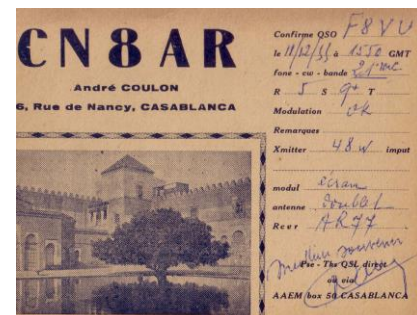 CN8AR
André COULON
6, Rue de Nancy, CASABLANCA
Confirme QSO F8VU
le 11/12/55 à 1550 GMT
fone - cw - bande 21 mc.
R 5 S 9+ T
Modulation ok
Remarques
Xmitter 48 w input
modul écran
antenne
Rcvr AR77
meilleur souvenir
Pse - Tks QSL direct
ou via
AAEM box 50 CASABLANCA